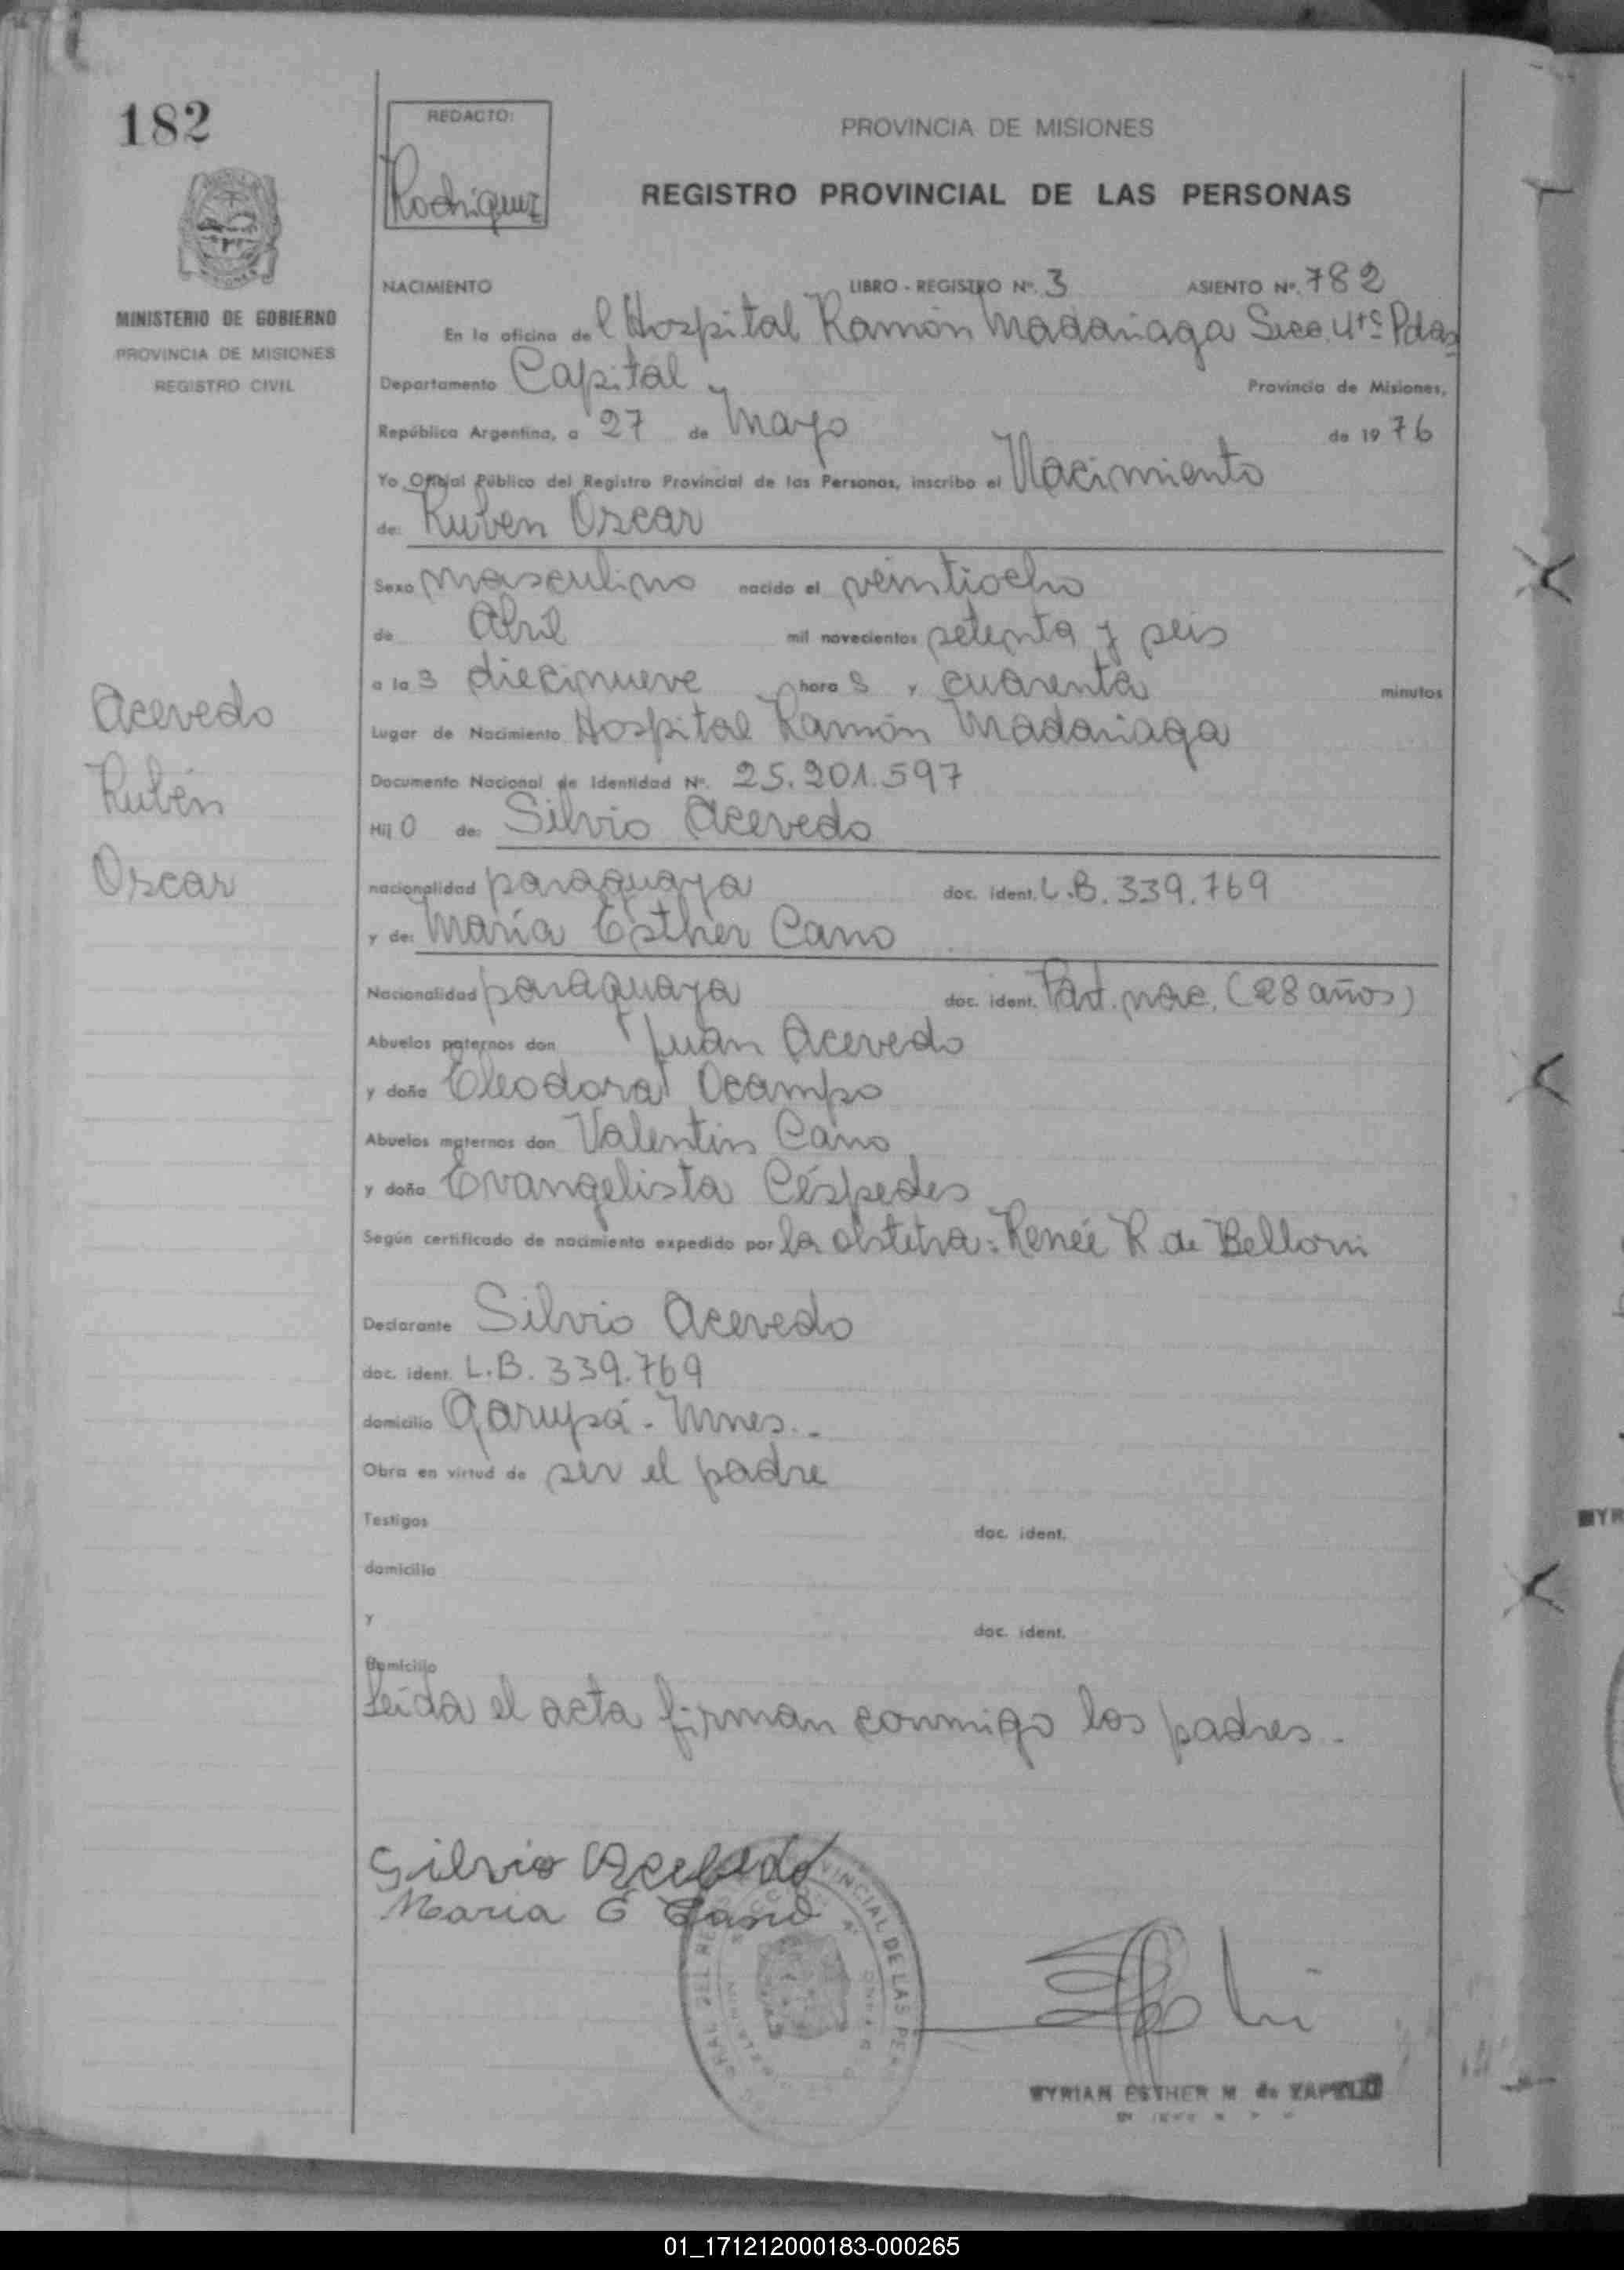 182
REDACTO:
Rodriguez
PROVINCIA DE MISIONES
REGISTRO PROVINCIAL DE LAS PERSONAS
MINISTERIO DE GOBIERNO
PROVINCIA DE MISIONES
REGISTRO CIVIL
NACIMIENTO LIBRO - REGISTRO Nº. 3 ASIENTO Nº. 782
En la oficina del Hospital Ramón Madariaga Secc. 4ta Pdas
Departamento Capital Provincia de Misiones,
República Argentina, a 27 de Mayo de 1976
Yo Oficial Público del Registro Provincial de las Personas, inscribo el Nacimiento
de: Ruben Oscar
Sexo masculino nacido el veintiocho
de Abril mil novecientos setenta y seis
a las diecinueve horas y cuarenta minutos
Lugar de Nacimiento Hospital Ramón Madariaga
Documento Nacional de Identidad Nº. 25.201.597
Hijo de: Silvio Acevedo
nacionalidad paraguaya doc. ident. L.B. 339.769
y de: María Esther Cano
Nacionalidad paraguaya doc. ident. Part. nac. (28 años)
Abuelos paternos don Juan Acevedo
y doña Cleodora Ocampo
Abuelos maternos don Valentin Cano
y doña Evangelista Céspedes
Según certificado de nacimiento expedido por la obstetra: Renée R. de Belloni
Declarante Silvio Acevedo
doc. ident. L.B. 339.769
domicilio Garupá - Mnes.-
Obra en virtud de ser el padre
Testigos doc. ident.
domicilio
y doc. ident.
Domicilio
Leida el acta firman conmigo los padres.
Acevedo
Rubén
Oscar
Silvio Acebedo
Maria E Cano
PROVINCIAL DE LAS PER
MYRIAN ESTHER M de
MYR
01_171212000183-000265